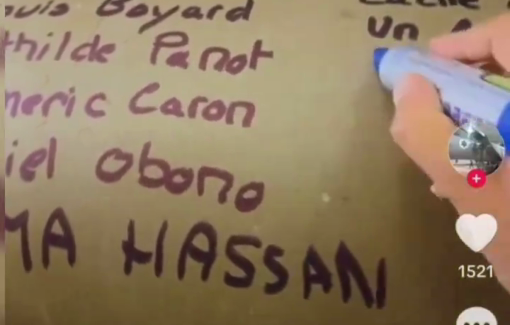 ouis Boyard
thilde Panot
meric Caron
iel obono
MA HASSAN
Un
1521